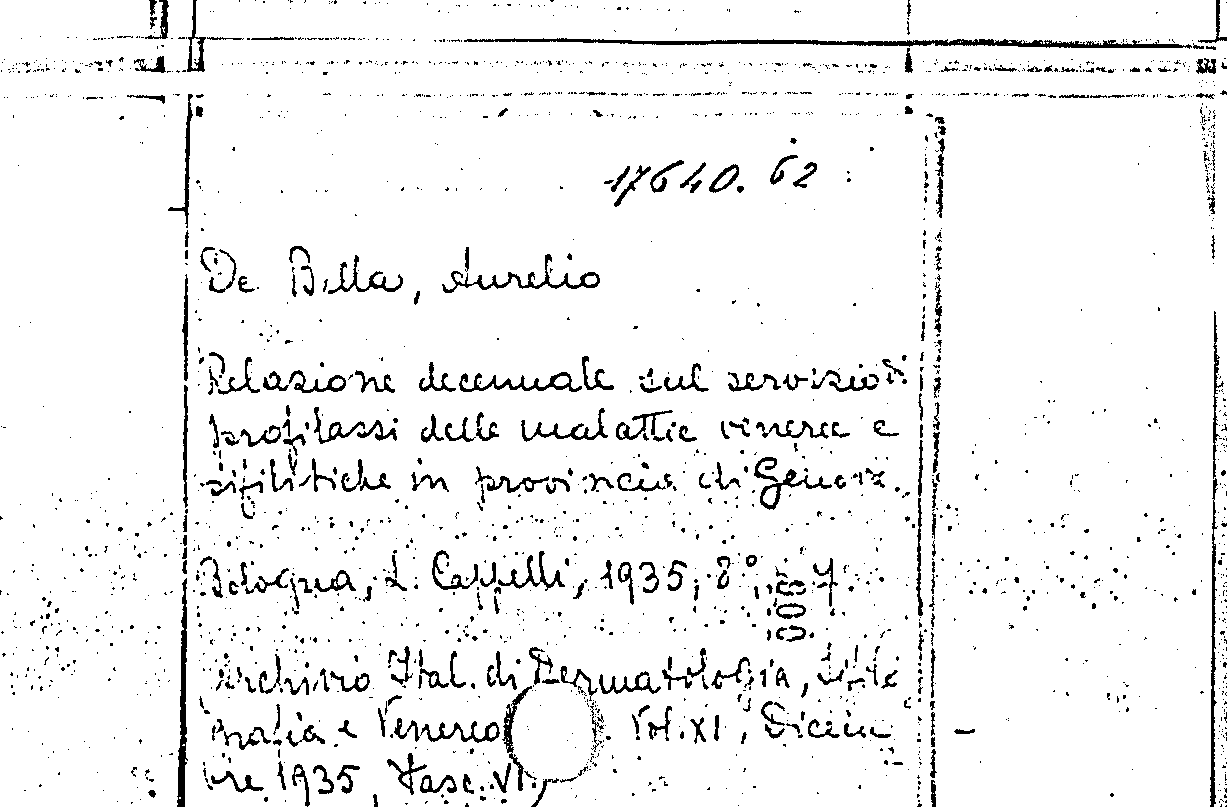 17640.62
De Bella, Aurelio
Relazione decennale sul servizio di
profilassi delle malattie veneree e
sifilitiche in provincia di Genova.
Bologna, L. Cappelli, 1935, 8°,
Archivio Ital. di Dermatologia, Sifilo
grafia e Venereo . Vol. XI, Dicem
bre 1935, Fasc. VI.